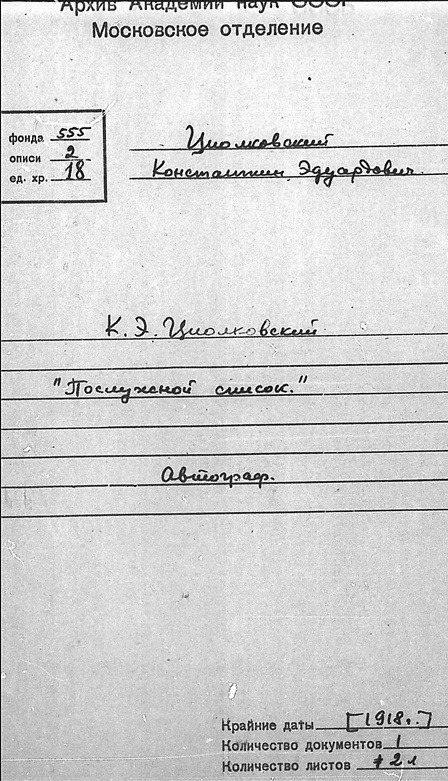 Архив Академии наук СССР
Московское отделение
фонда 555
описи 2
ед. хр. 18
Циолковский
Константин Эдуардович.
К. Э. Циолковский
"Послужной список."
Автограф.
Крайние даты [1918г.]
Количество документов 1
Количество листов 2 л